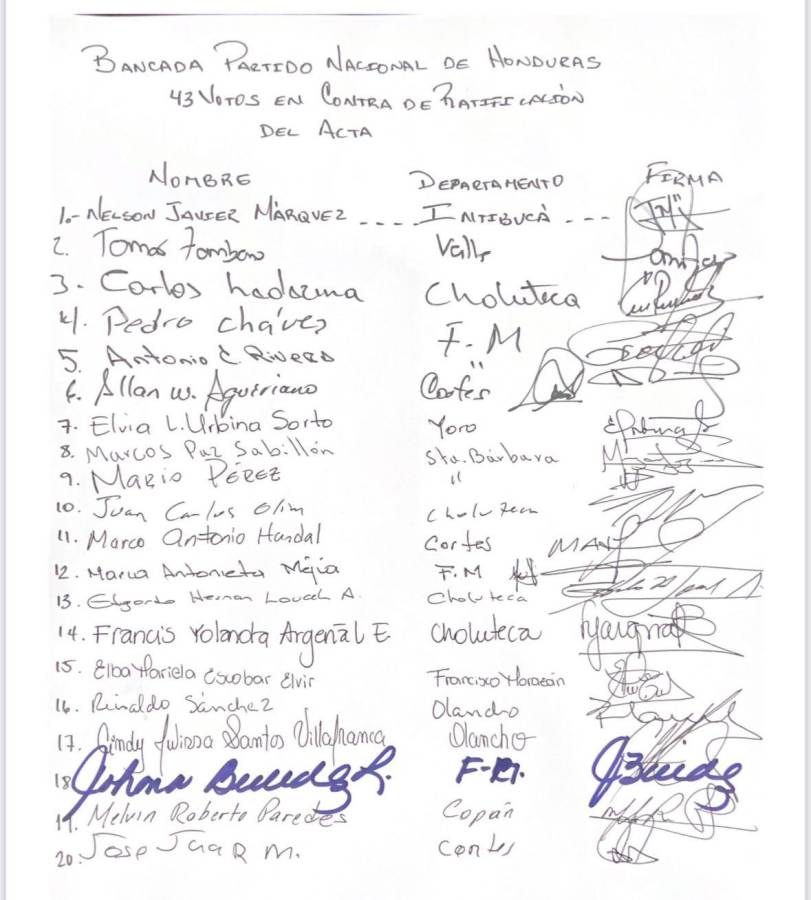 BANCADA PARTIDO NACIONAL DE HONDURAS
43 VOTOS EN CONTRA DE RATIFICACIÓN
DEL ACTA
NOMBRE DEPARTAMENTO FIRMA
1.- NELSON JAVIER MÁRQUEZ INTIBUCÁ
2. Tomas Valle
3.- Carlos Choluteca
4. Pedro Cháves F.M
5. Antonio C. Rivera "
6. Allan W. Cortés
7. Elvia L. Urbina Sorto Yoro
8. Marcos Paz Sabillón Sta. Bárbara
9. MARIO PÉREZ "
10. Juan Carlos
11. Marco Antonio Handal Cortes
12. Maria Antonieta Mejía F.M
13. Edgardo Choluteca
14. Francis Yolanda Argeñal E. Choluteca
15. Elba Mariela Escobar Elvir Francisco Morazán
16. Reinaldo Sánchez Olancho
17. Cindy Julissa Santos Villafranca Olancho
18 Johana
19. Melvin Roberto Paredes Copán
20. Jose M. Cortes